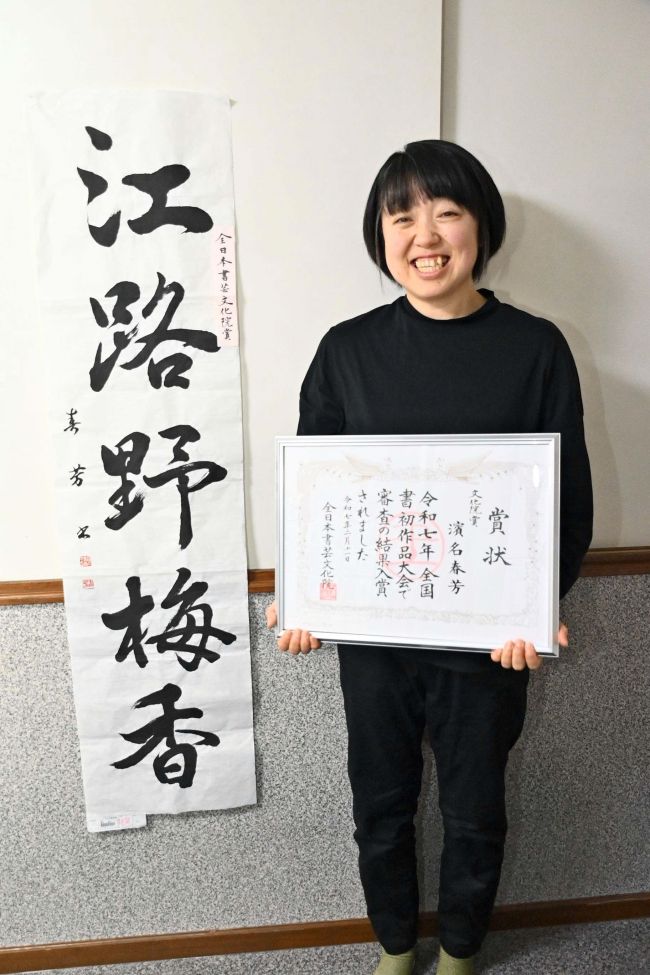 江路野梅香
春芳書
全日本書芸文化院賞
賞状
文化院賞
濱名春芳
令和七年全国
書初作品大会で
審査の結果入賞
されました
令和七年二月十一日
全日本書芸文化院